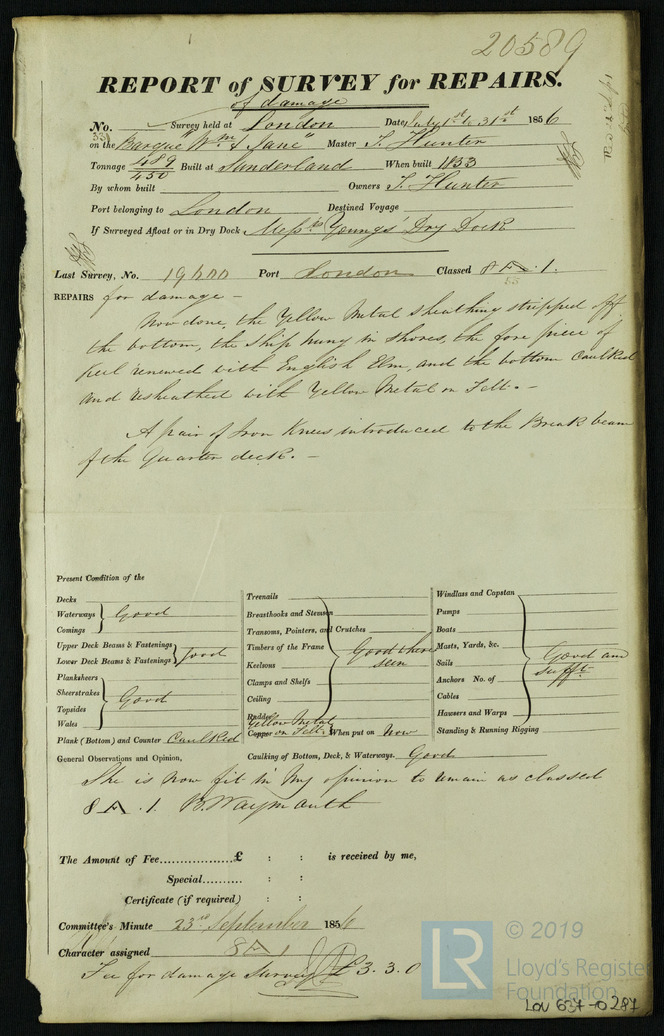 20589
REPORT of SURVEY for REPAIRS.
of damage
No. Survey held at London Date, July 1st to 31st 1856
on the Barque "Wm & Jane" Master T. Hunter
Tonnage 489/450 Built at Sunderland When built 1833
By whom built Owners T. Hunter
Port belonging to London Destined Voyage
If Surveyed Afloat or in Dry Dock Messrs Youngs' Dry Dock
Last Survey, No. Port London Classed 8 A 1.
53
REPAIRS for damage -
Now done, the Yellow Metal sheathing stripped off
the bottom, the Ship hung in shores, the fore piece of
keel renewed with English Elm, and the bottom Caulked
and resheathed with Yellow Metal on Felt. -
A pair of Iron Knees introduced to the Break beam
of the Quarter deck. -
Present Condition of the
Decks
Waterways Good
Comings
Upper Deck Beams & Fastenings
Lower Deck Beams & Fastenings Good
Planksheers
Sheerstrakes Good
Topsides
Wales
Plank (Bottom) and Counter Caulked
Treenails
Breasthooks and Stemson
Transoms, Pointers, and Crutches
Timbers of the Frame Good where
Keelsons seen
Clamps and Shelfs
Ceiling
Rudder
Yellow Metal
Copper on Felt When put on Now
Windlass and Capstan
Pumps
Boats
Masts, Yards, &c. Good and
Sails sufft
Anchors No. of
Cables
Hawsers and Warps
Standing & Running Rigging
General Observations and Opinion, Caulking of Bottom, Deck, & Waterways. Good
She is now fit in my opinion to remain as classed
8 A .1. B. Waymouth
The Amount of Fee.................£ : : is received by me,
Special.......... : :
Certificate (if required) : :
Committee's Minute 23rd September 1856
Character assigned 8 A 1
Fee for damage Survey £3.3.0
LR
© 2019
Lloyd's Register
Foundation
LON 637-0287